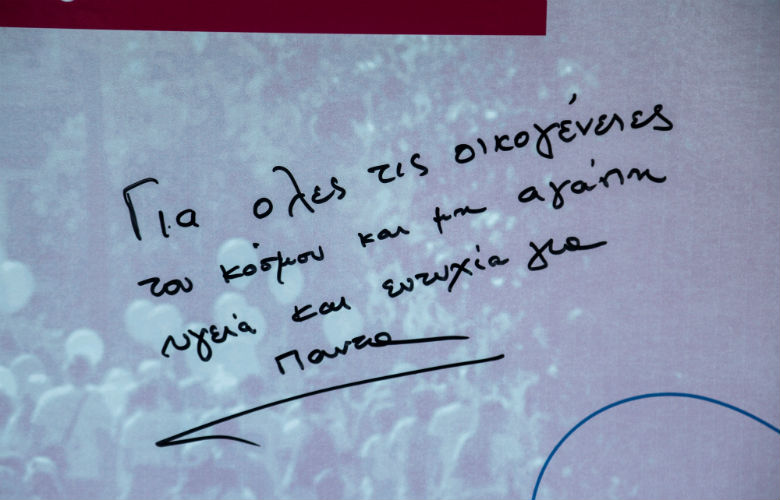 Για ολες τις οικογένειες
του κόσμου και μη αγάπη
υγεία και ευτυχία για
παντα